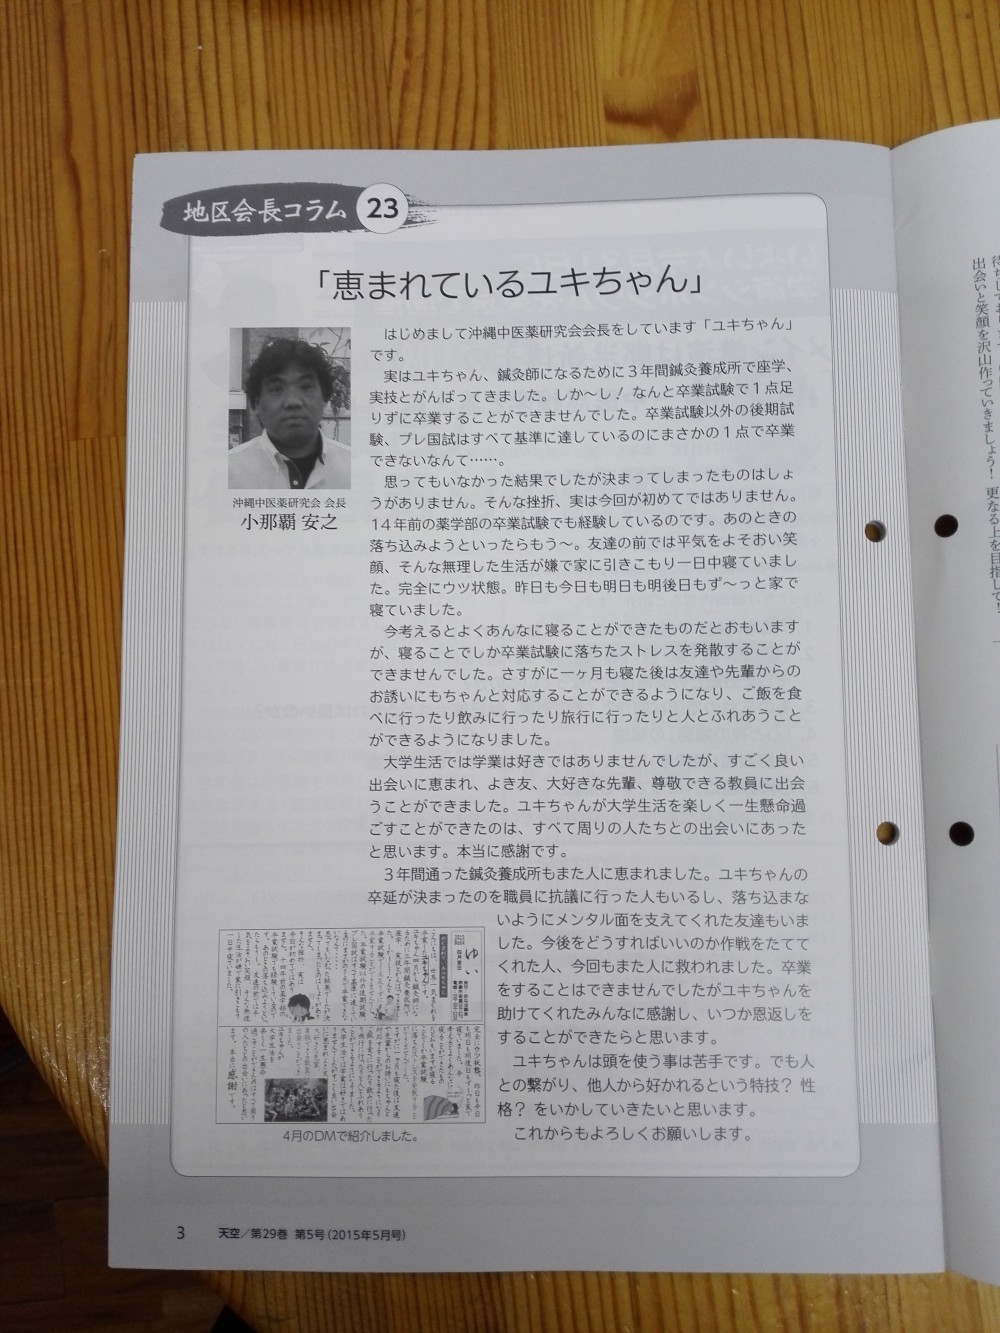 地区会長コラム 23
「恵まれているユキちゃん」
はじめまして沖縄中医薬研究会会長をしています「ユキちゃん」
です。
実はユキちゃん、鍼灸師になるために３年間鍼灸養成所で座学、
実技とがんばってきました。しか～し！ なんと卒業試験で１点足
りずに卒業することができませんでした。卒業試験以外の後期試
験、プレ国試はすべて基準に達しているのにまさかの１点で卒業
できないなんて……。
思ってもいなかった結果でしたが決まってしまったものはしょ
うがありません。そんな挫折、実は今回が初めてではありません。
14年前の薬学部の卒業試験でも経験しているのです。あのときの
落ち込みようといったらもう～。友達の前では平気をよそおい笑
顔、そんな無理した生活が嫌で家に引きこもり一日中寝ていまし
た。完全にウツ状態。昨日も今日も明日も明後日もず～っと家で
寝ていました。
今考えるとよくあんなに寝ることができたものだとおもいます
が、寝ることでしか卒業試験に落ちたストレスを発散することが
できませんでした。さすがに一ヶ月も寝た後は友達や先輩からの
お誘いにもちゃんと対応することができるようになり、ご飯を食
べに行ったり飲みに行ったり旅行に行ったりと人とふれあうこと
ができるようになりました。
大学生活では学業は好きではありませんでしたが、すごく良い
出会いに恵まれ、よき友、大好きな先輩、尊敬できる教員に出会
うことができました。ユキちゃんが大学生活を楽しく一生懸命過
ごすことができたのは、すべて周りの人たちとの出会いにあった
と思います。本当に感謝です。
３年間通った鍼灸養成所もまた人に恵まれました。ユキちゃんの
卒延が決まったのを職員に抗議に行った人もいるし、落ち込まな
いようにメンタル面を支えてくれた友達もいま
した。今後をどうすればいいのか作戦をたてて
くれた人、今回もまた人に救われました。卒業
をすることはできませんでしたがユキちゃんを
助けてくれたみんなに感謝し、いつか恩返しを
することができたらと思います。
ユキちゃんは頭を使う事は苦手です。でも人
との繋がり、他人から好かれるという特技？ 性
格？ をいかしていきたいと思います。
これからもよろしくお願いします。
沖縄中医薬研究会 会長
小那覇 安之
ゆい
4月のDMで紹介しました。
3 天空／第29巻 第5号（2015年5月号）
出会いと笑顔を沢山作っていきましょう！ 更なる上を目指して！